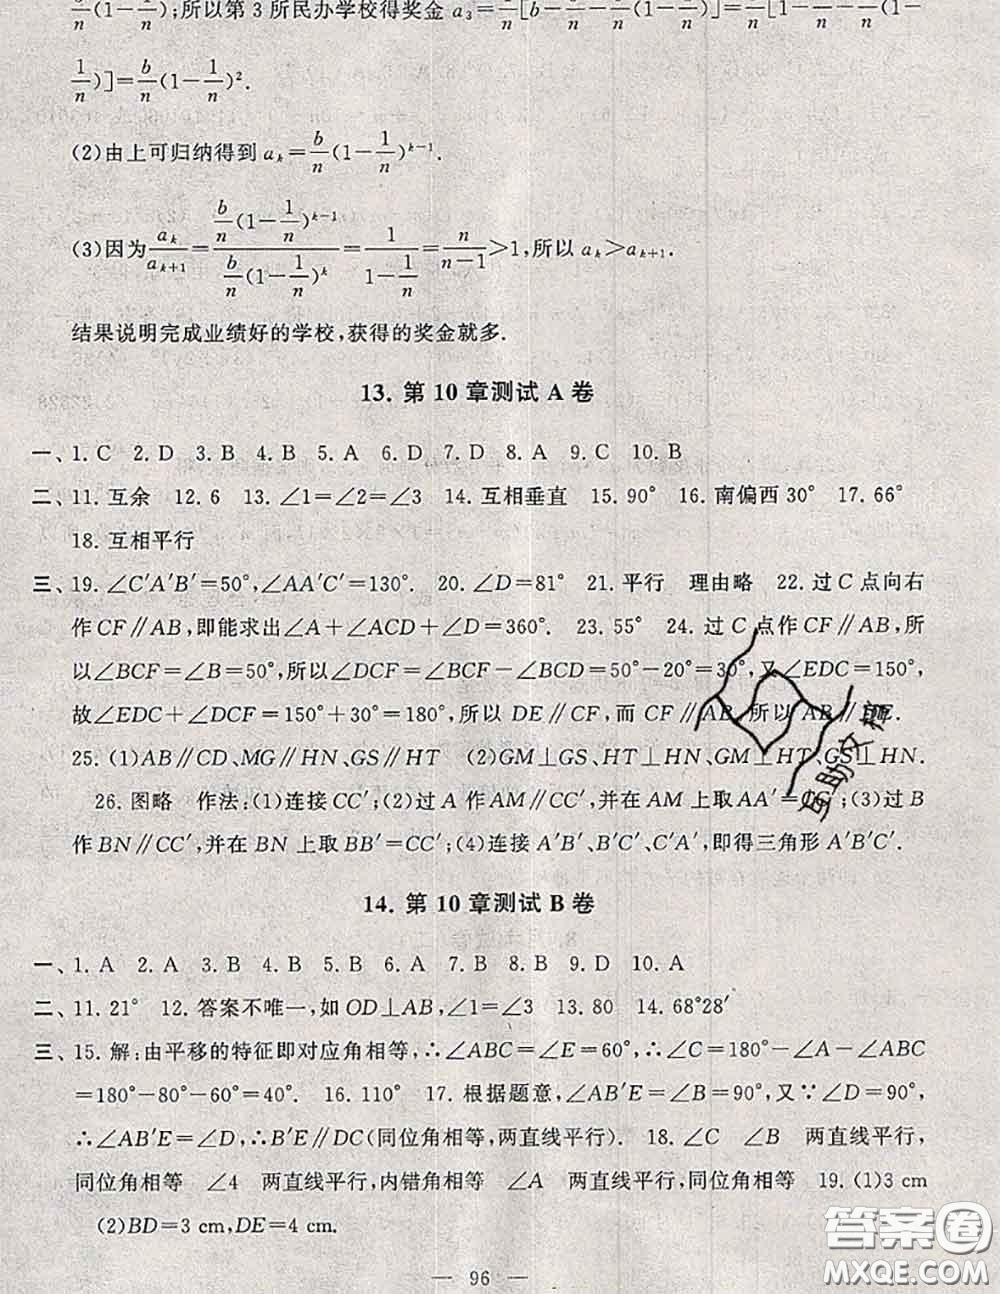 $\frac{b}{n}(1-\frac{1}{n})$;所以第3所民办学校得奖金 $a_3=\frac{1}{n}[b-\frac{b}{n}-\frac{b}{n}(1-\frac{1}{n})]=\frac{b}{n}[1-\frac{1}{n}-\frac{1}{n}(1-$
$\frac{1}{n})]=\frac{b}{n}(1-\frac{1}{n})^2$.
(2)由上可归纳得到 $a_k=\frac{b}{n}(1-\frac{1}{n})^{k-1}$.
(3)因为$\frac{a_k}{a_{k+1}}=\frac{\frac{b}{n}(1-\frac{1}{n})^{k-1}}{\frac{b}{n}(1-\frac{1}{n})^k}=\frac{1}{1-\frac{1}{n}}=\frac{n}{n-1}>1$,所以 $a_k>a_{k+1}$.
结果说明完成业绩好的学校,获得的奖金就多.
13. 第 10 章测试 A 卷
一、1. C 2. D 3. B 4. B 5. A 6. D 7. D 8. A 9. C 10. B
二、11. 互余 12. 6 13. ∠1=∠2=∠3 14. 互相垂直 15. 90° 16. 南偏西 30° 17. 66°
18. 互相平行
三、19. ∠C′A′B′=50°,∠AA′C′=130°. 20. ∠D=81° 21. 平行 理由略 22. 过 C 点向右
作 CF∥AB,即能求出∠A+∠ACD+∠D=360°. 23. 55° 24. 过 C 点作 CF∥AB,所
以∠BCF=∠B=50°,所以∠DCF=∠BCF-∠BCD=50°-20°=30°,又∠EDC=150°,
故∠EDC+∠DCF=150°+30°=180°,所以 DE∥CF,而 CF∥AB,所以 AB∥DE.
25. (1)AB∥CD、MG∥HN、GS∥HT (2)GM⊥GS、HT⊥HN、GM⊥HT、GS⊥HN.
26. 图略 作法:(1)连接 CC′;(2)过 A 作 AM∥CC′,并在 AM 上取 AA′=CC′;(3)过 B
作 BN∥CC′,并在 BN 上取 BB′=CC′;(4)连接 A′B′、B′C′、C′A′,即得三角形 A′B′C′.
互助文档
14. 第 10 章测试 B 卷
一、1. A 2. A 3. B 4. B 5. B 6. A 7. B 8. B 9. D 10. A
二、11. 21° 12. 答案不唯一,如 OD⊥AB,∠1=∠3 13. 80 14. 68°28′
三、15. 解:由平移的特征即对应角相等,∴∠ABC=∠E=60°,∴∠C=180°-∠A-∠ABC
=180°-80°-60°=40°. 16. 110° 17. 根据题意,∠AB′E=∠B=90°,又∵∠D=90°,
∴∠AB′E=∠D,∴B′E∥DC(同位角相等,两直线平行). 18. ∠C ∠B 两直线平行,
同位角相等 ∠4 两直线平行,内错角相等 ∠A 两直线平行,同位角相等 19. (1)3 cm
(2)BD=3 cm,DE=4 cm.
答案卷
MXQE.COM
— 96 —